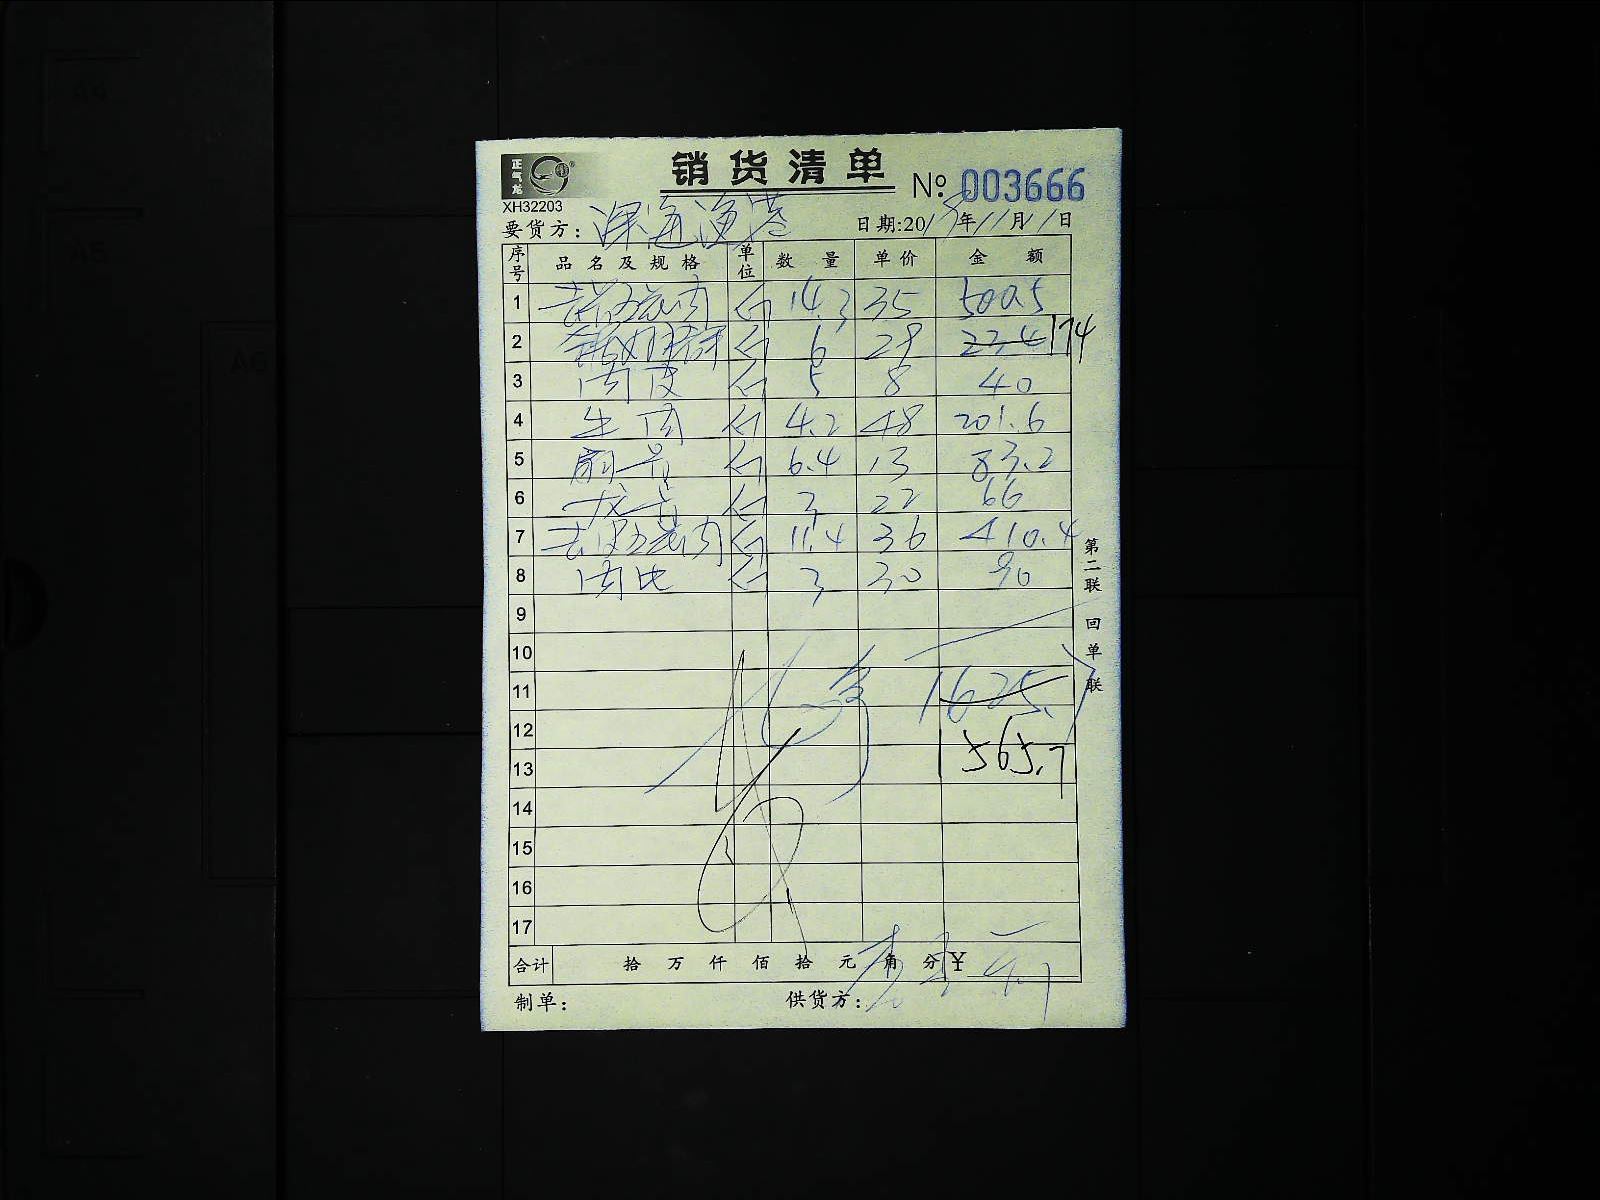 正气龙
销货清单
№ 003666
XH32203
要货方: 深海渔港 日期:2019年11月1日
序号 品名及规格 单位 数量 单价 金额
1 斤 14.3 35 500.5
2 斤 6 29 234 174
3 肉皮 斤 5 8 40
4 牛肉 斤 4.2 48 201.6
5 斤 6.4 13 83.2
6 龙骨 斤 3 22 66
7 去皮五花肉 斤 11.4 36 410.4
8 斤 3 30 90
9
10
11 1625.7
12
13 1565.7
14
15
16
17
合计 拾万仟佰拾元角分 ¥
制单: 供货方:
第二联 回单联